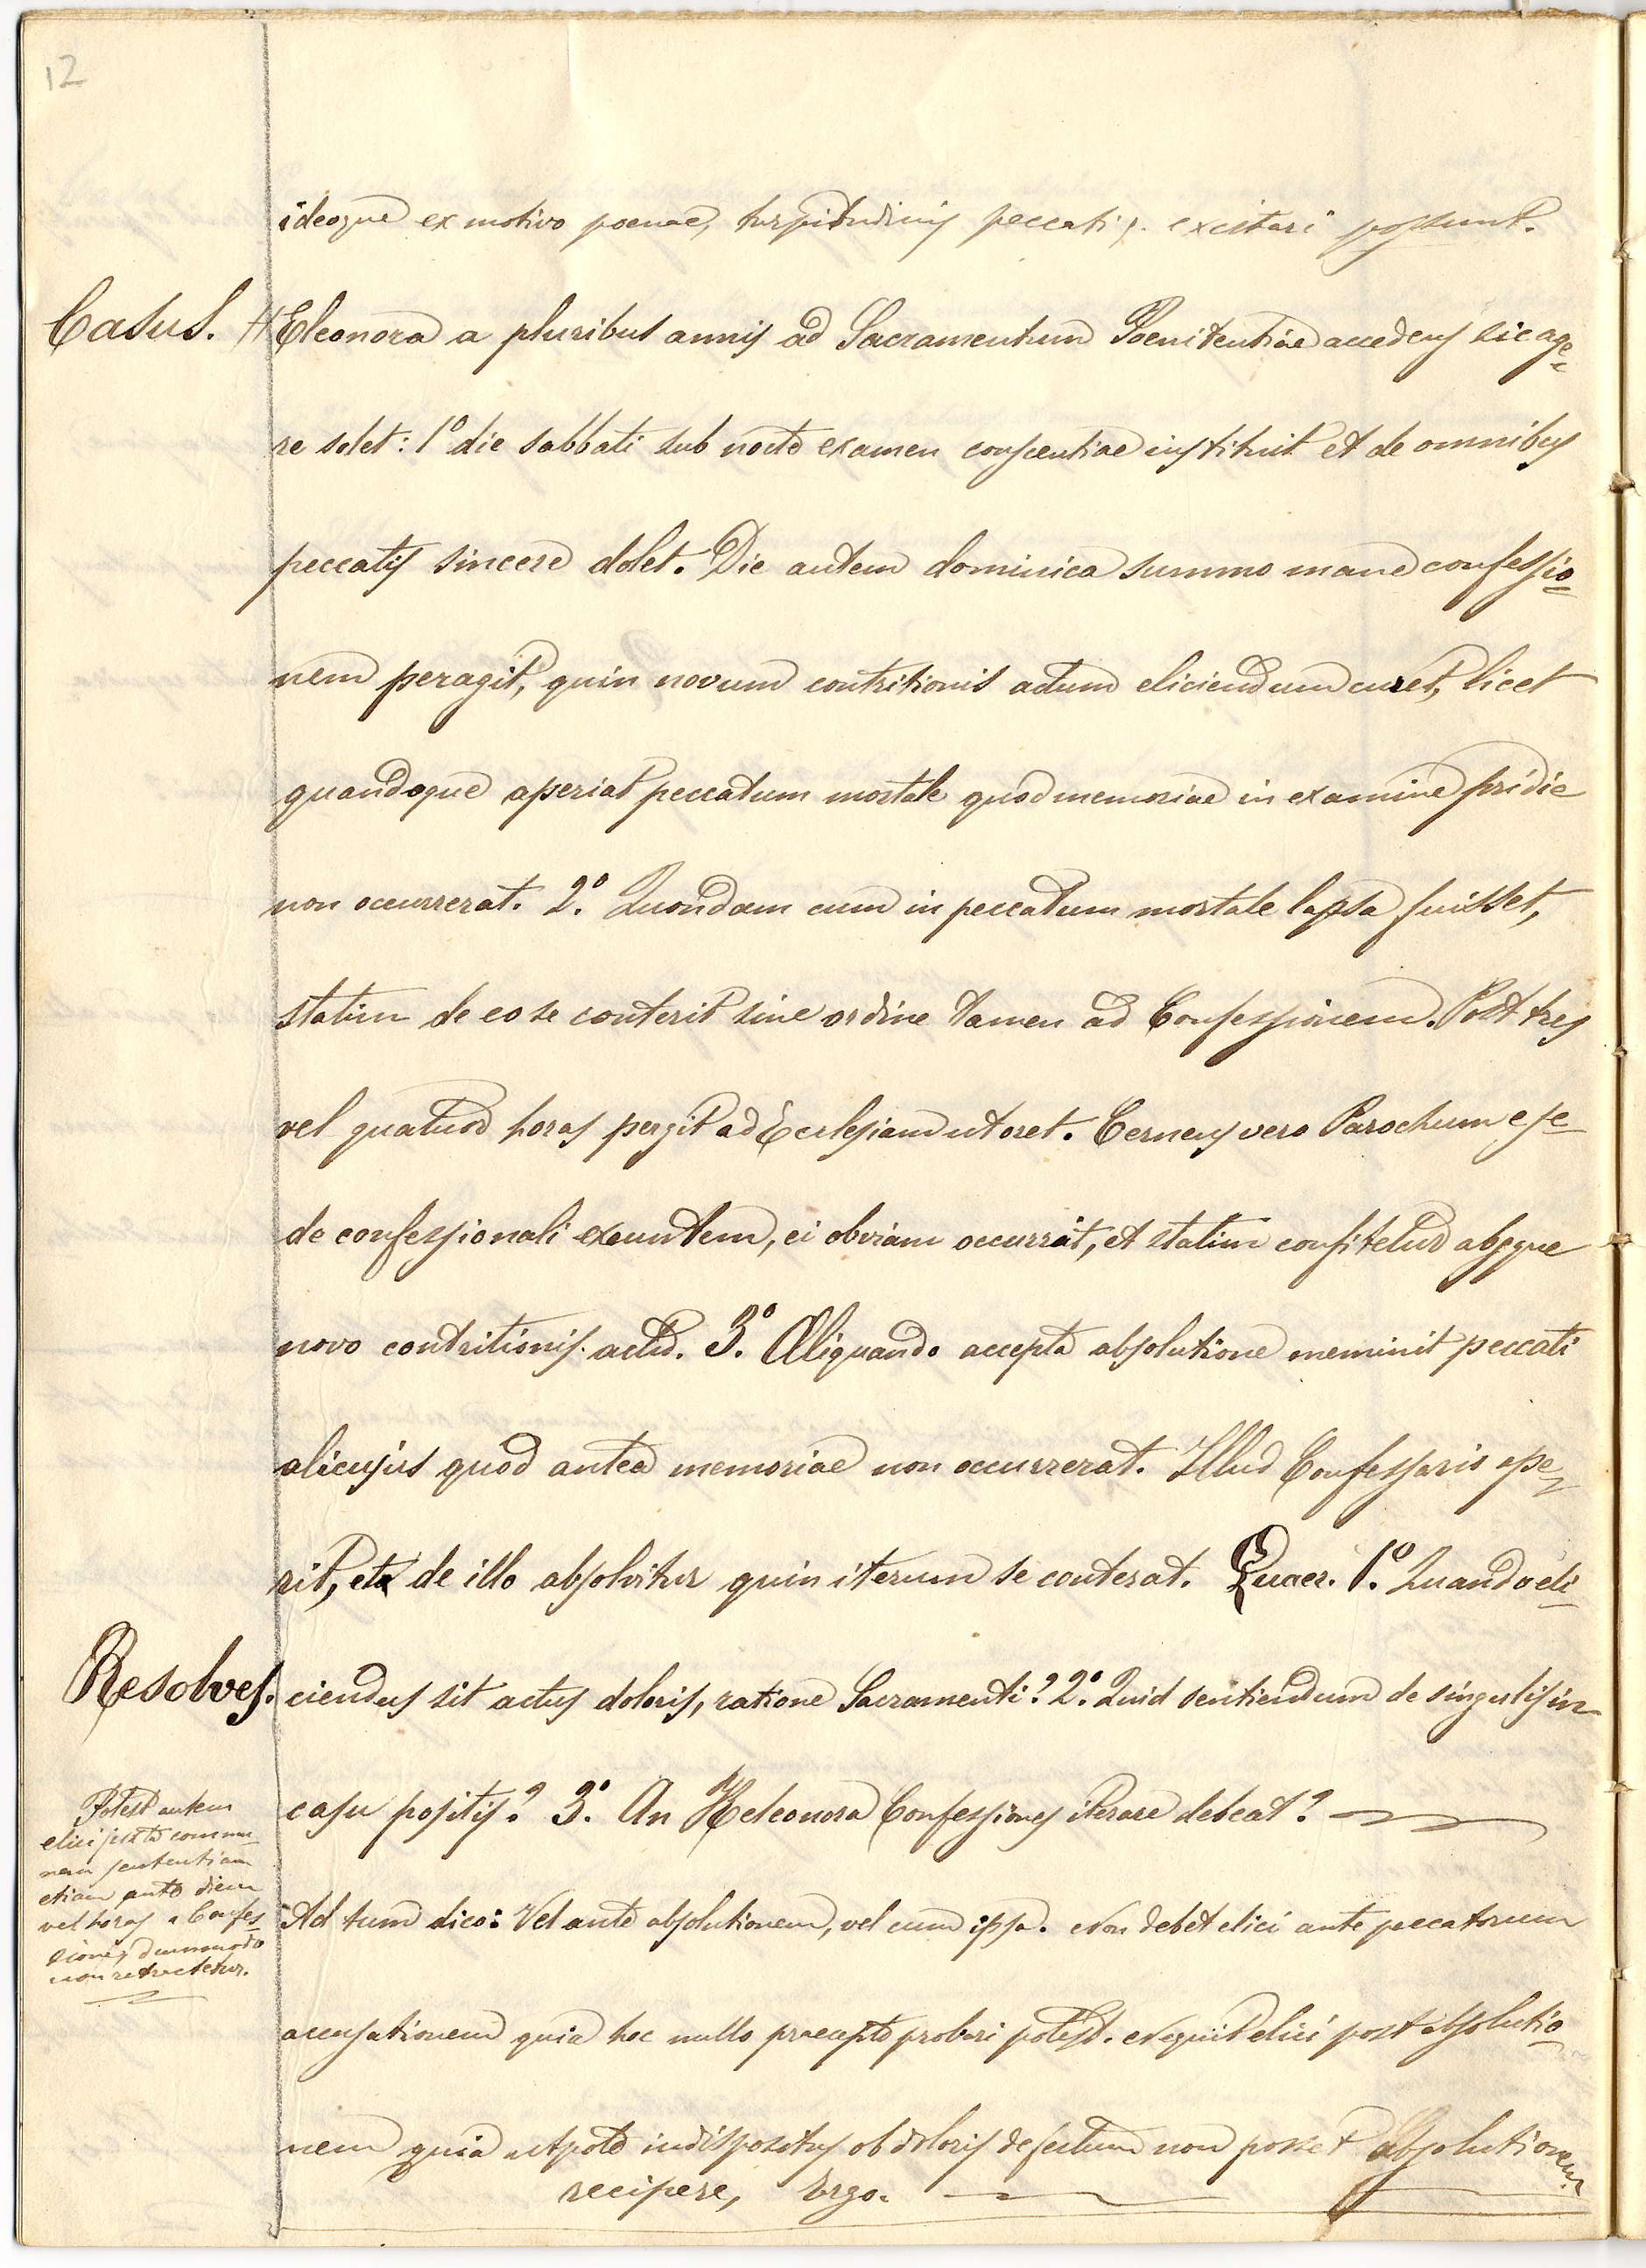 12
ideoque ex motivo poenae, turpitudinis peccati, excitari possunt.
Casus. # Eleonora a pluribus annis ad Sacramentum Poenitentiae accedens sic age-
re solet: 1º die sabbati sub nocte examen conscentiae instituit et de omnibus
peccatis sincere dolet. Die autem dominica summo mane confessio-
nem peragit, quin novum contritionis actum eliciendum curet, licet
quandoque aperiat peccatum mortale quod memoriae in examine pridie
non occurrerat. 2º. Quondam cum in peccatum mortale lapsa fuisset,
statim de eo se conterit sine ordine tamen ad Confessionem. Post tres
vel quatuor horas pergit ad Ecclesiam ut oret. Cernens vero Parochum e se-
de confessionali exeuntem, ei obviam occurrit, et statim confitetur absque
novo contritionis actu. 3º. Aliquando accepta absolutione meminit peccati
alicujus quod antea memoriae non occurrerat. Illud Confessario ape-
rit, et de illo absolvitur quin iterum se conterat. Quaer. 1º. Quando eli-
Resolves. ciendus sit actus doloris, ratione Sacramenti? 2º. Quid sentiendum de singulis in
casu positis? 3º. An Heleonora Confessiones iterare debeat?
Potest autem
elici juxta commu-
nem sententiam
etiam ante diem
vel horas a Confes-
sione, dummodo
non retractetur.
Ad 1um dico: Vel ante absolutionem, vel cum ipsa. Non debet elici ante peccatorum
accusationem quia hoc nullo praecepto probari potest. Nequit elici post absolutio-
nem quia utpote indispositus ob doloris defectum non posset absolutionem
recipere, Ergo.